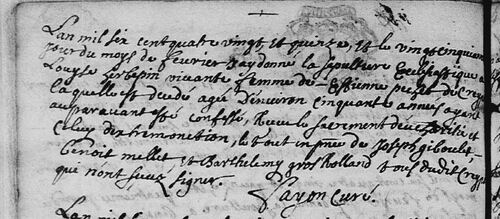 Lan mil six cent quatre vingt et quinze, et le vingt cinquiem
jour du mois de fevrier Jay donne la sepulture Ecclesiastique a
Louyse vivante femme de Estienne de
laquelle est decedé agé denviron cinquante annés ayant
auparavant esté confesse, Receu le sacrement de et
celuy dextremonction, le tout en pnce de Joseph giboulet,
Benoit mellet et Barthelemy gros holland tous dudit
que nont sceu signer.
Fayon curé.
Lan mil